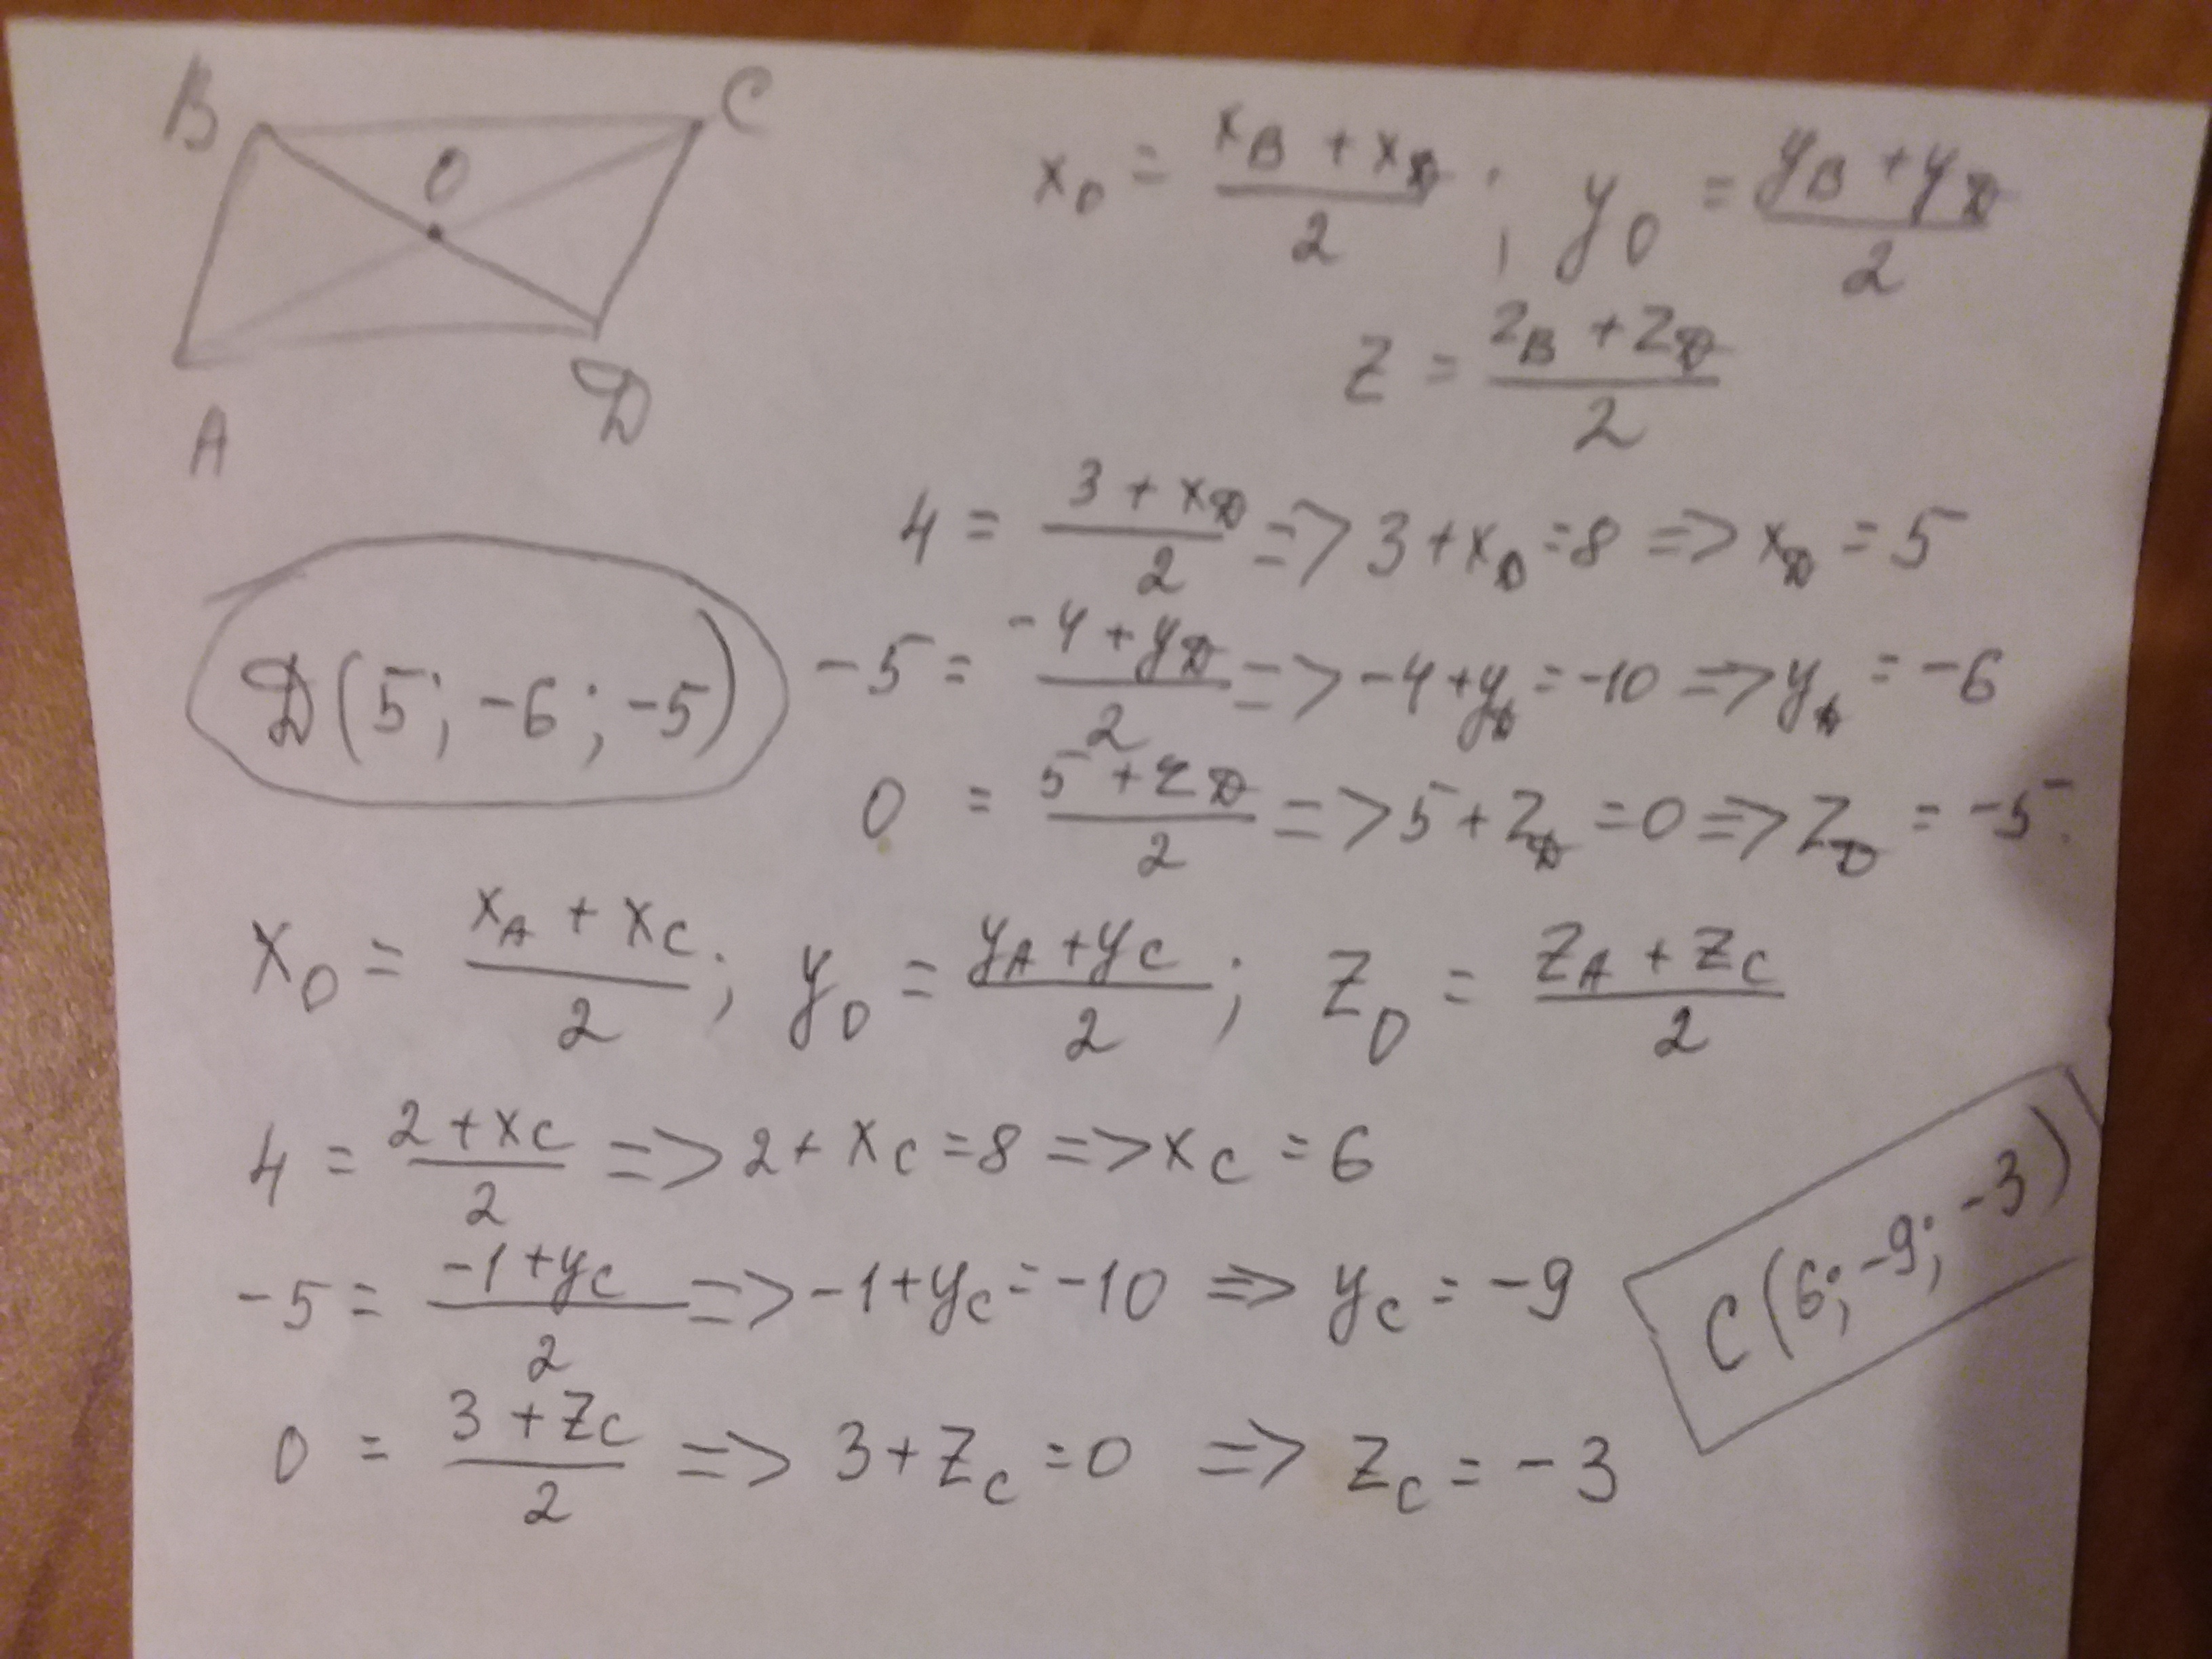 B C
O
A D
x₀ = (x_B + x_D)/2 ; y₀ = (y_B + y_D)/2
z = (z_B + z_D)/2
4 = (3 + x_D)/2 => 3 + x_D = 8 => x_D = 5
D(5; -6; -5)
-5 = (-4 + y_D)/2 => -4 + y_D = -10 => y_D = -6
0 = (5 + z_D)/2 => 5 + z_D = 0 => z_D = -5.
x₀ = (x_A + x_C)/2 ; y₀ = (y_A + y_C)/2 ; z₀ = (z_A + z_C)/2
4 = (2 + x_C)/2 => 2 + x_C = 8 => x_C = 6
-5 = (-1 + y_C)/2 => -1 + y_C = -10 => y_C = -9
C(6; -9; -3)
0 = (3 + z_C)/2 => 3 + z_C = 0 => z_C = -3